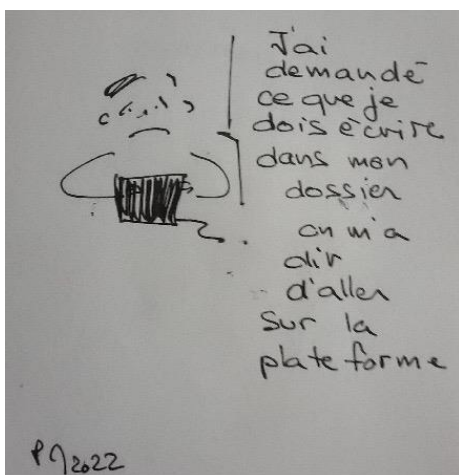 J'ai
demandé
ce que je
dois écrire
dans mon
dossier
on m'a
dir
d'aller
sur la
plate forme
PJ 2022